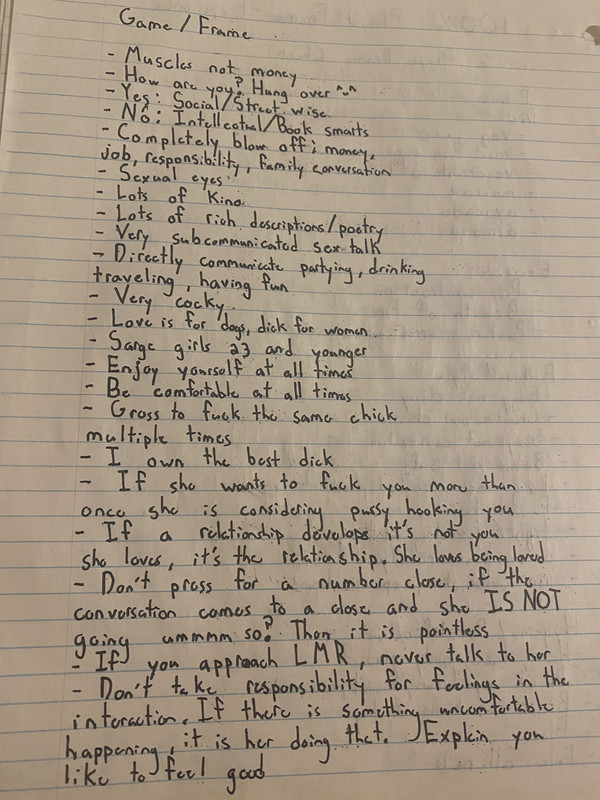 Game / Frame
- Muscles not money
- How are you? Hung over ^ᴗ^
- Yes: Social/Street wise
- No: Intellectual/Book smarts
- Completely blow off; money,
job, responsibility, family conversation
- Sexual eyes
- Lots of Kino
- Lots of rich descriptions/poetry
- Very subcommunicated sex talk
- Directly communicate partying, drinking
traveling, having fun
- Very cocky
- Love is for dogs, dick for women
- Sarge girls 23 and younger
- Enjoy yourself at all times
- Be comfortable at all times
- Gross to fuck the same chick
multiple times
- I own the best dick
- If she wants to fuck you more than
once she is considering pussy hooking you
- If a relationship develops it's not you
she loves, it's the relationship. She loves being loved
- Don't press for a number close, if the
conversation comes to a close and she IS NOT
going ummmm so? Then it is pointless
- If you approach LMR, never talk to her
- Don't take responsibility for feelings in the
interaction. If there is something uncomfortable
happening, it is her doing that. Explain you
like to feel good